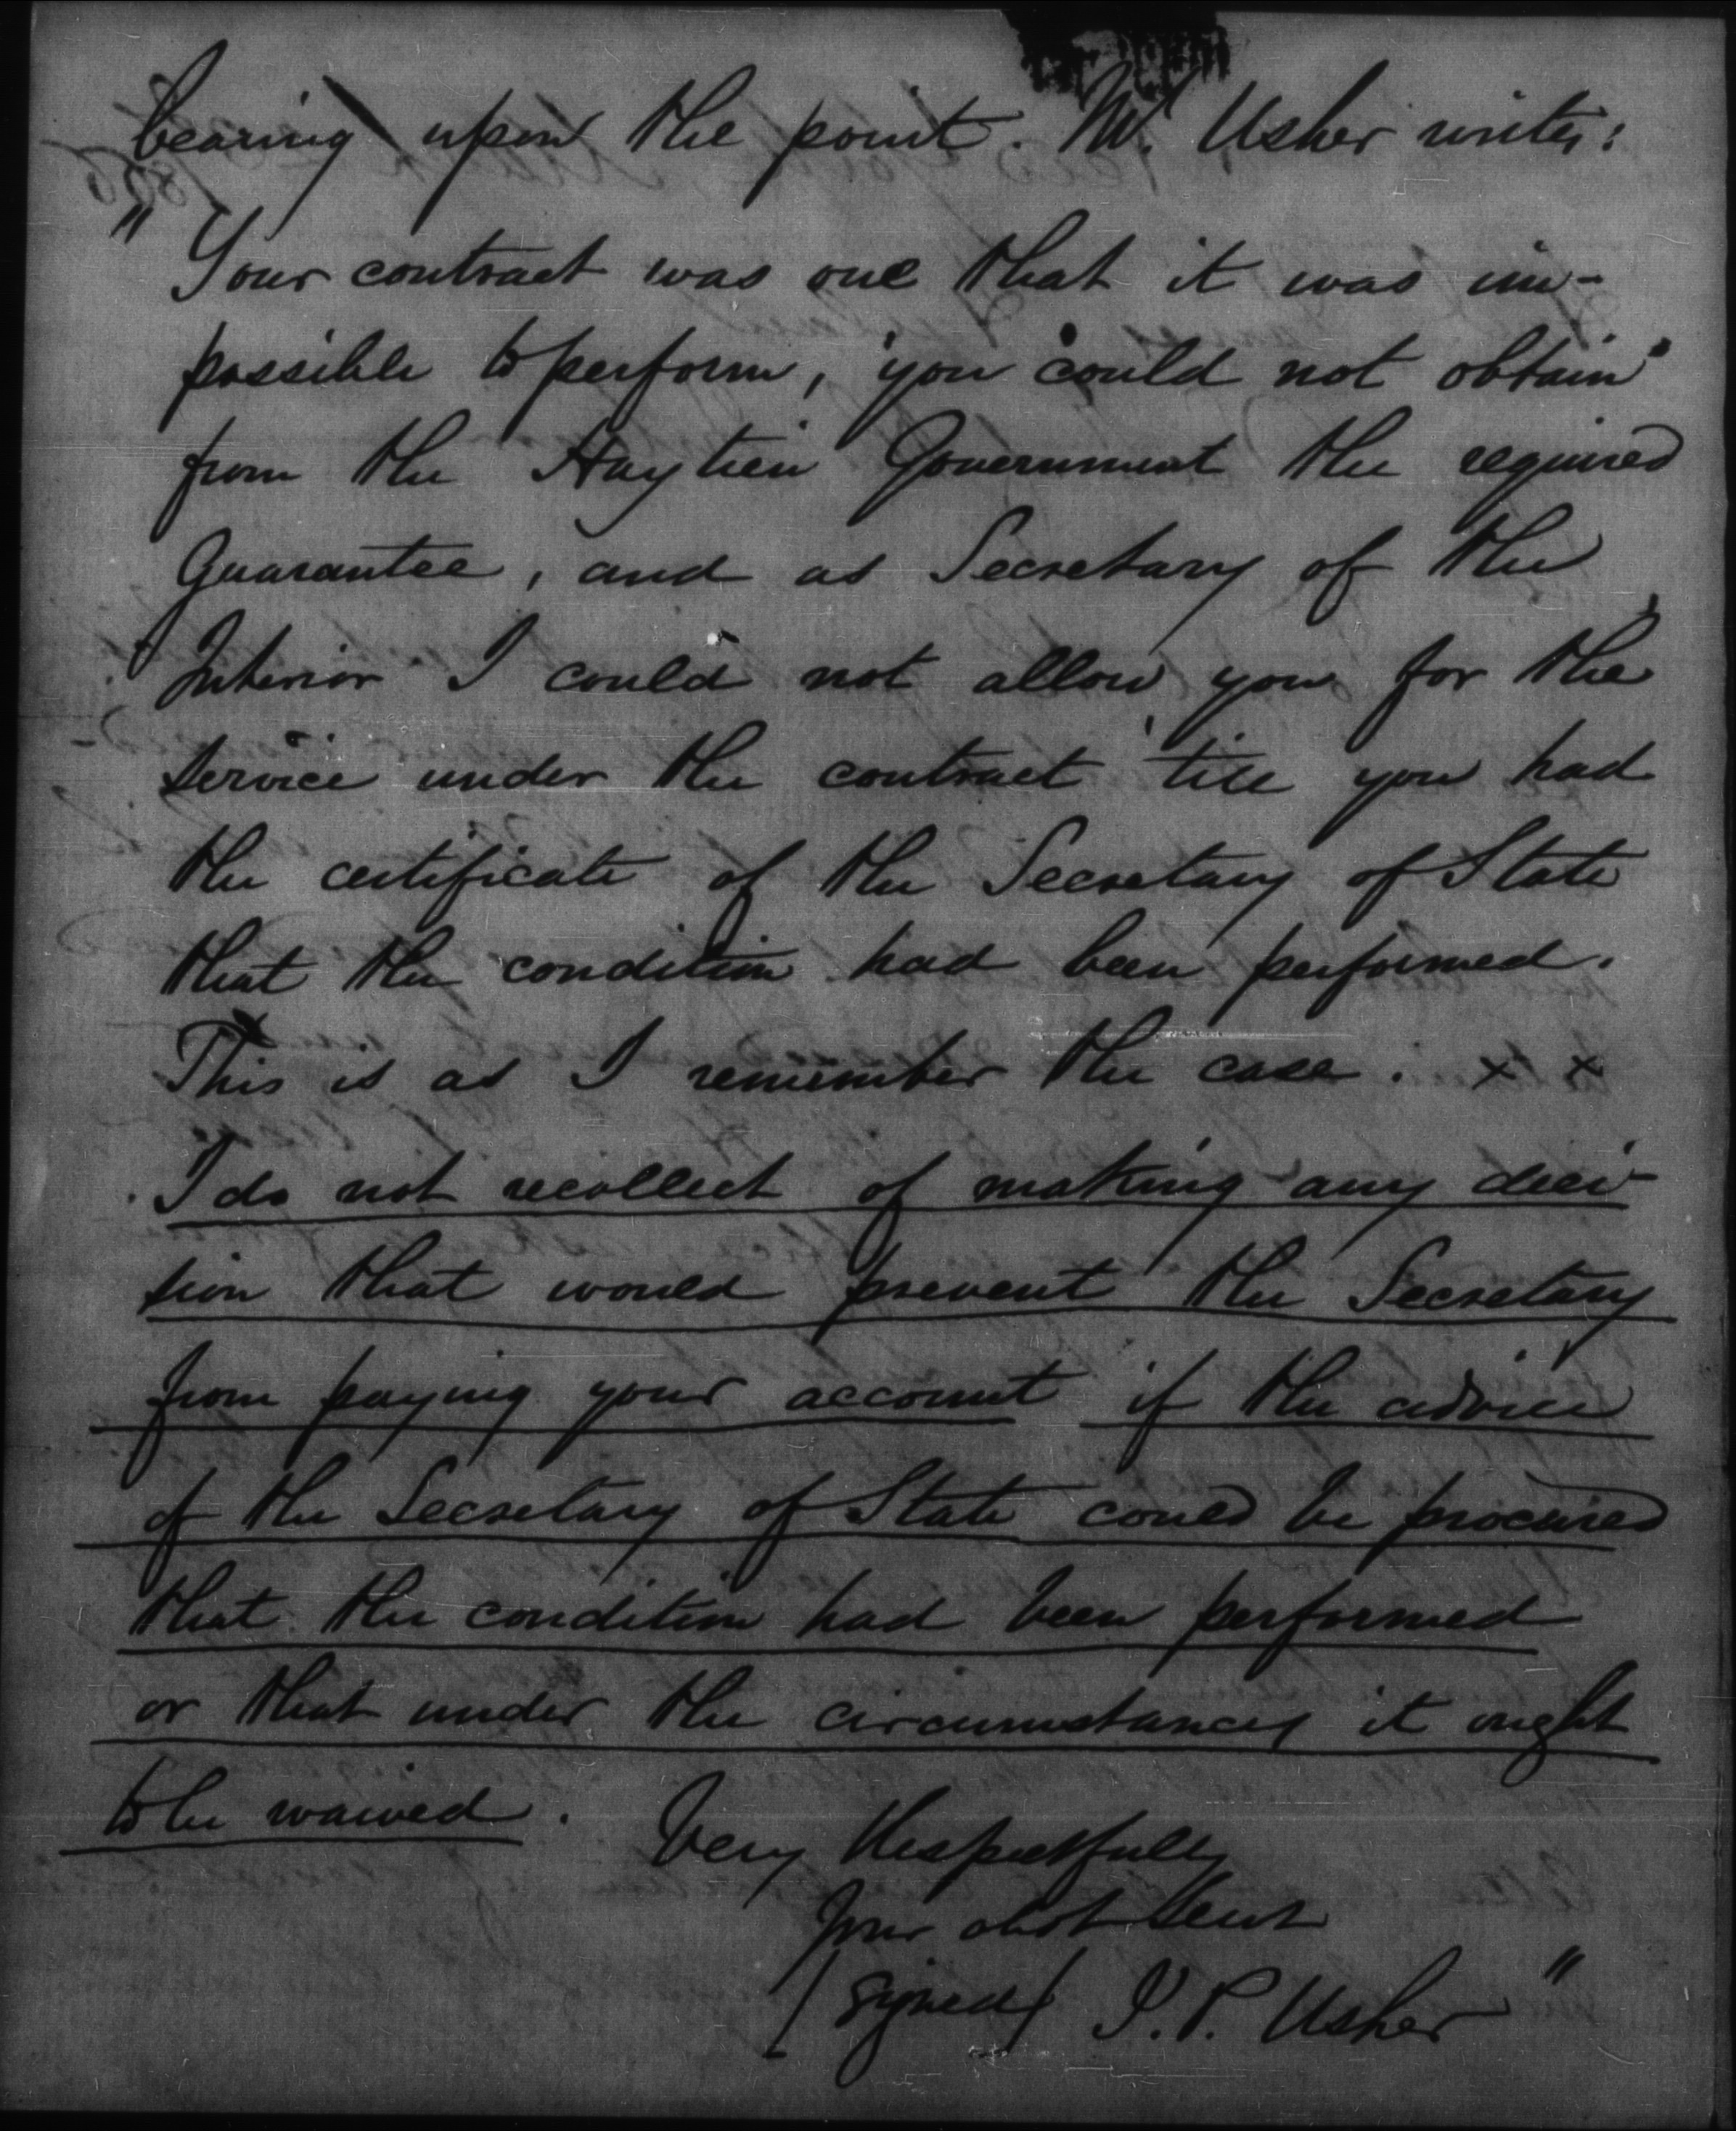 bearing upon the point. Mr. Usher writes:
"Your contract was one that it was im-
possible to perform, you could not obtain
from the Haytien Government the required
Guarantee, and as Secretary of the
Interior I could not allow you for the
service under the contract till you had
the certificate of the Secretary of State
that the condition had been performed.
This is as I remember the case. x x
I do not recollect of making any deci-
sion that would prevent the Secretary
from paying your account if the advice
of the Secretary of State could be procured
that the condition had been performed
or that under the circumstances it ought
to be waived.
Very Respectfully
Your obdt Servt
(signed) J. P. Usher"